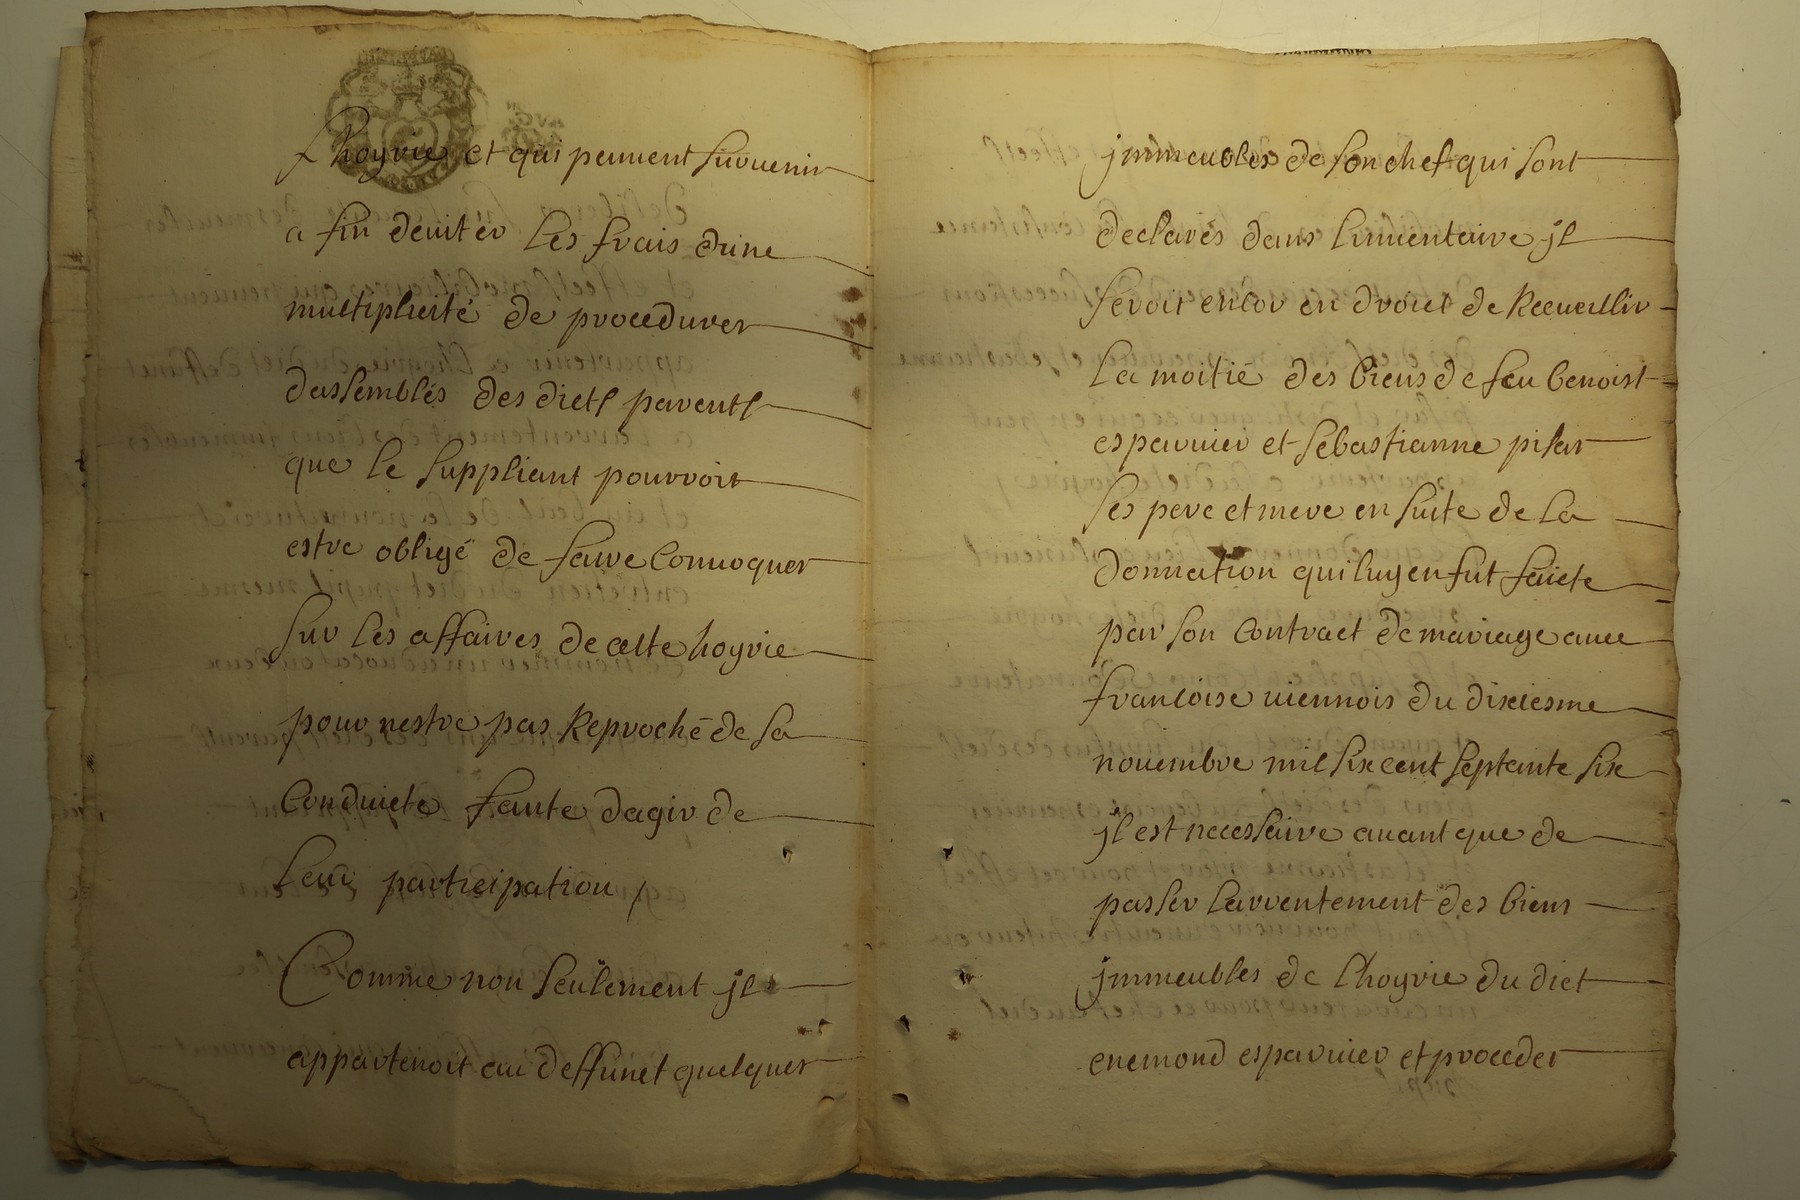 Lhoyrie et qui peuuent suruenir
a fin deuiter les frais dune
multiplicité de procedures
dassemblés des dicts parents
que le suppliant pourroit
estre obligé de faire conuoquer
sur les affaires de cette hoyrie
pour nestre pas Reproché de sa
conduicte faute dagir de
leur participation /
Comme non seulement jl
appartenoit au deffunct quelques
jmmeubles de son chef qui sont
declarés dans linuentaire jl
seroit encor en droict de Recueillir
la moitié des biens de feu benoist
esparuier et sebastianne pisar
ses pere et mere en suite de la
donnation qui luy en fut faicte
par son contract de mariage auec
francoise uiennois du dixiesme
nouembre mil six cent septante six
jl est necessaire auant que de
passer larrentement des biens
jmmeubles de lhoyrie du dict
enemond esparuier et proceder